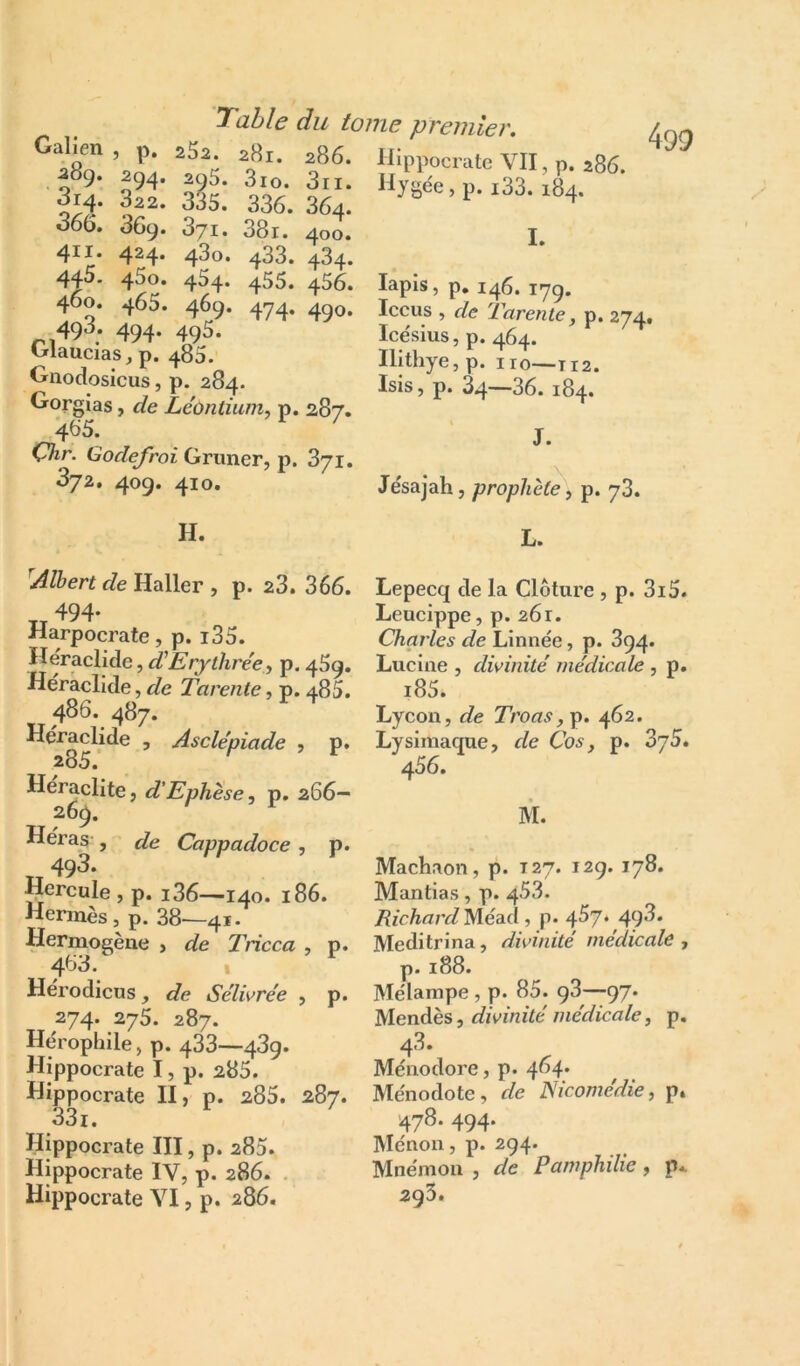 Table du tome premier. 499
Galien, p. 252. 281. 286.
289. 294. 295. 310. 311.
314. 322. 335. 336. 364.
366. 369. 371. 381. 400.
411. 424. 430. 433. 434.
445. 450. 454. 455. 456.
460. 465. 469. 474. 490.
493. 494. 495.
Glaucias, p. 485.
Gnodosicus, p. 284.
Gorgias, de Léontium, p. 287.
465.
Chr. Godefroi Gruner, p. 371.
372. 409. 410.
H.
Albert de Haller, p. 23. 366.
494.
Harpocrate, p. 135.
Héraclide, d'Erythrée, p. 459.
Héraclide, de Tarente, p. 485.
486. 487.
Héraclide, Asclépiade, p.
285.
Héraclite, d'Ephèse, p. 266-
269.
Héras, de Cappadoce, p.
493.
Hercule, p. 136—140. 186.
Hermès, p. 38—41.
Hermogène, de Tricca, p.
463.
Hérodicus, de Sélivrée, p.
274. 275. 287.
Hérophile, p. 433—439.
Hippocrate I, p. 285.
Hippocrate II, p. 285. 287.
331.
Hippocrate III, p. 285.
Hippocrate IV, p. 286.
Hippocrate VI, p. 286.
Hippocrate VII, p. 286.
Hygée, p. 133. 184.
I.
Iapis, p. 146. 179.
Iccus, de Tarente, p. 274.
Icésius, p. 464.
Ilithye, p. 110—112.
Isis, p. 34—36. 184.
J.
Jésajah, prophète, p. 73.
L.
Lepecq de la Clôture, p. 315.
Leucippe, p. 261.
Charles de Linnée, p. 394.
Lucine, divinité médicale, p.
185.
Lycon, de Troas, p. 462.
Lysimaque, de Cos, p. 375.
456.
M.
Machaon, p. 127. 129. 178.
Mantias, p. 453.
Richard Méad, p. 457. 493.
Meditrina, divinité médicale,
p. 188.
Mélampe, p. 85. 93—97.
Mendès, divinité médicale, p.
43.
Ménodore, p. 464.
Ménodote, de Nicomédie, p.
478. 494.
Ménon, p. 294.
Mnémon, de Pamphilie, p.
293.